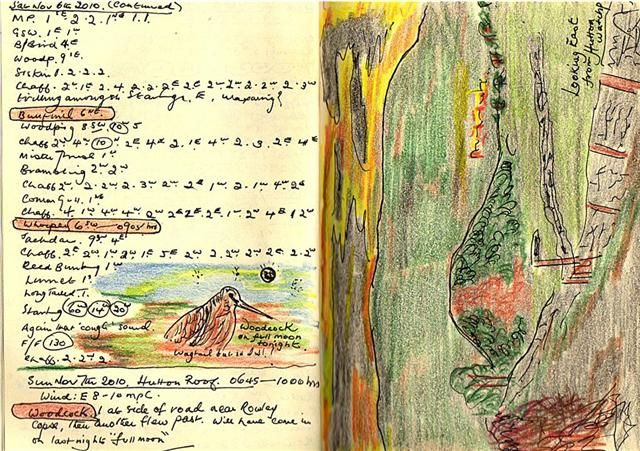 Sat Nov 6th 2010. (Continued)
M.P. 1ᴱ 2. 2. 1ᴺᴱ 1. 1.
GSW. 1ᴱ 1ʷ
B/Bird 4ᴱ
Woodp. 9ᴱ
Siskin 1. 2. 2. 2.
Chaff. 2ʷ 1ᴱ 2. 4. 2. 2. 2ᴱ 2ᴱ 2ʷ 2ʷ 2. 2ʷ 2. 3ʷ
amongst Starling. E, Waxwing?
Bullfinch 6
Woodpig 8ˢʷ 20ʷ 5
Chaff 2ʷ 4ʷ 10ʷ 2ᴱ 4ᴱ 2. 1ᴱ 4ʷ 2. 3. 2ᴱ 4ᴱ
Mistle Thrush 1ʷ
Brambling 2ʷ 2ʷ
Chaff 2ʷ. 2. 2ʷ 3ʷ 2ʷ. 2ᴱ 1ʷ 2. 1ʷ 4ʷ 2ᴱ
Common Gull. 1
Chaff. 4. 1ʷ 4ʷ 4ʷ 2ʷ 2ᴱ 2ᴱ. 2ᴱ. 1ʷ 2ʷ 4ᴱ 12ʷ
Whooper 6ˢʷ 0905/hrs
Jackdaw. 9ˢ 4ᴱ
Chaff. 2ᴱ 2ʷ 1ʷ 2ʷ 1ᴱ 5ᴱ 2ʷ 2. 2ʷ 2ʷ 2ᴱ 2. 2ʷ
Reed Bunting 1ʷ
Linnet 1ˢ
Long Tailed. T.
Starling 60ʷ 14ʷ 20ʷ
Again that "cough" sound
F/F 130
Chaff. 2. 2ʷ 2
Woodcock
on full moon
tonight.
Wagtail but is It!
Sun Nov 7th 2010. Hutton Roof. 0645 - 1000 hrs
Wind: E 8-10 mph.
Woodcock. 1 at side of road near Rowley
Copse, then another flew past. Will have come in
on last nights "full moon"
Looking East
from Hutton